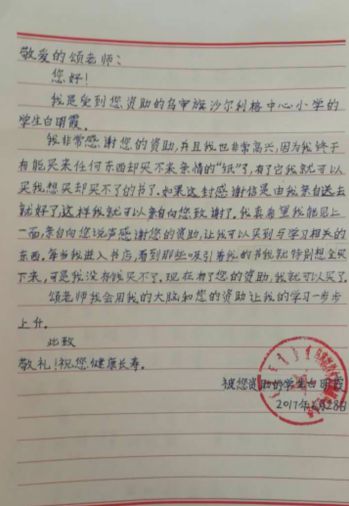 敬爱的颂老师：
您好！
我是受到您资助的乌审旗沙尔利格中心小学的
学生白明霞。
我非常感谢您的资助，并且我也非常高兴，因为我终于
有能买来任何东西却买不来亲情的“纸”了，有了它我就可以
买我想买却买不了的书了。如果这封感谢信是由我亲自送去
就好了，这样我就可以亲自向您致谢了。我真希望我能见上
一面，亲自向您说声感谢您的资助，让我可以买到与学习相关的
东西。每当我进入书店，看到那些吸引着我的书我就特别想全买
下来，可是我没有钱买不了。现在有了您的资助，我就可以买了。
颂老师我会用我的大脑和您的资助让我的学习一步步
上升。
此致
敬礼！祝您健康长寿。
被您资助的学生白明霞
2017年月28日